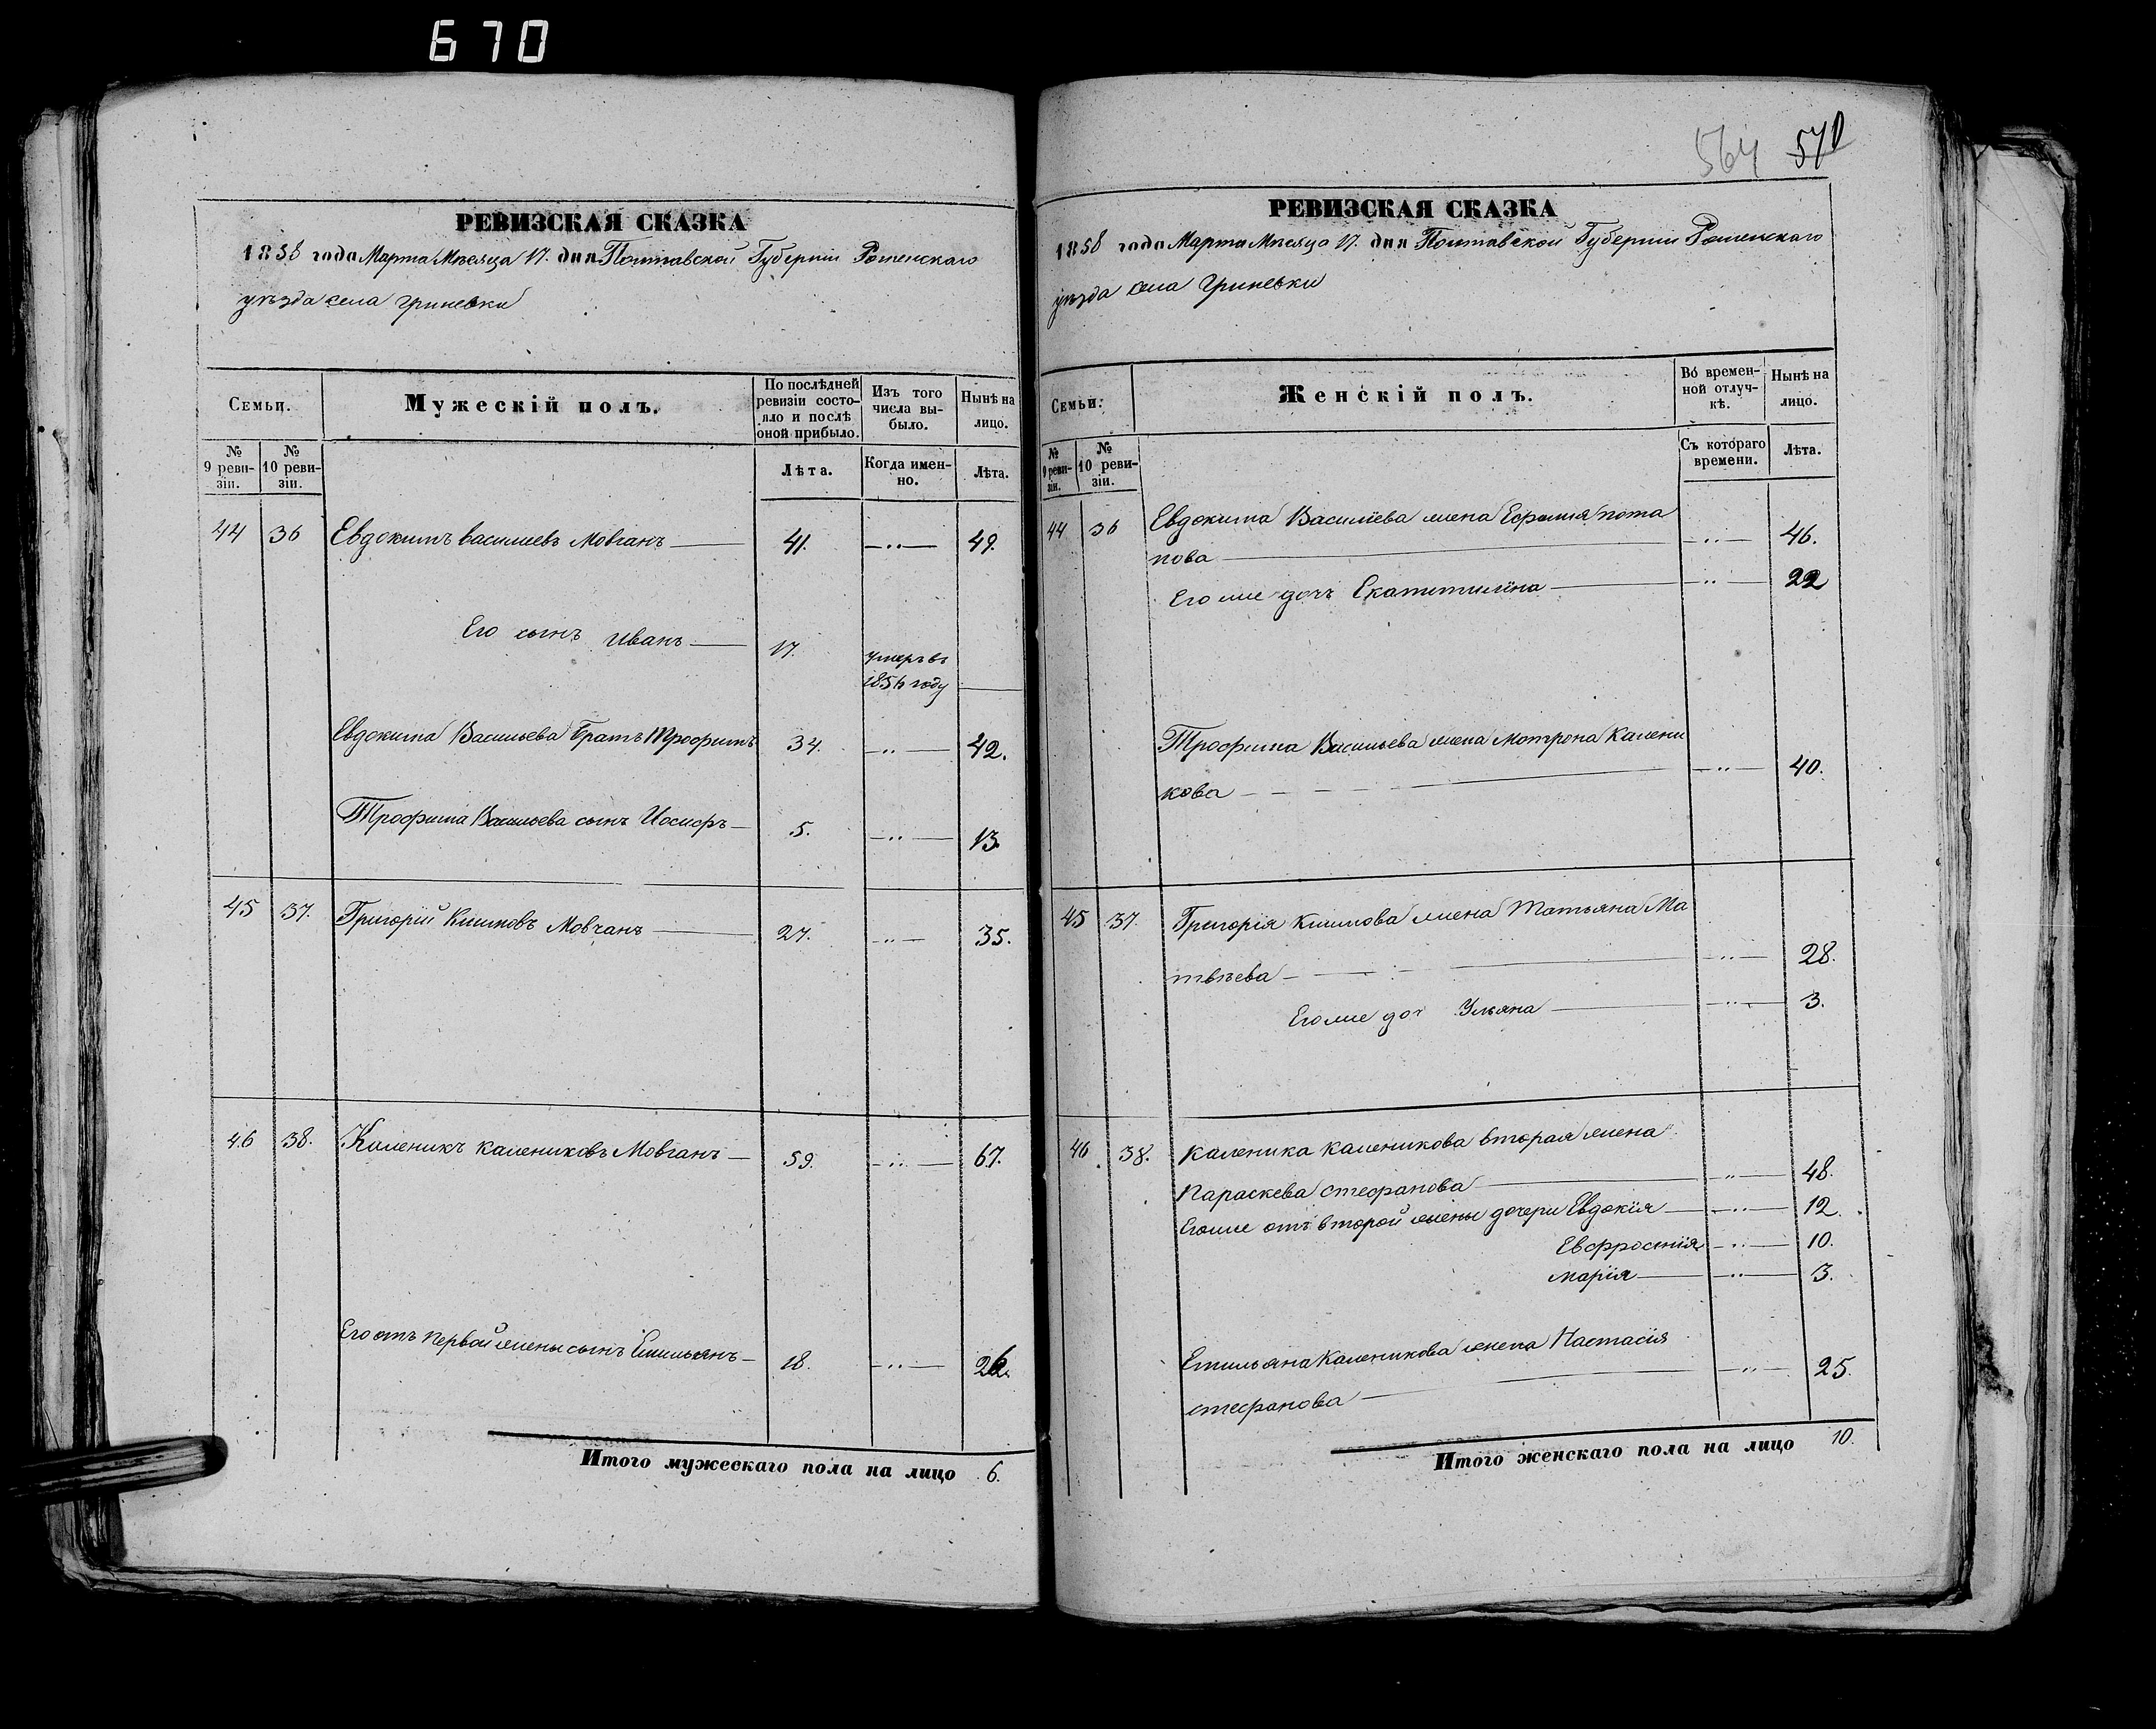 670
РЕВИЗСКАЯ СКАЗКА
1858 года Марта Мѣсяца 17. дня Полтавской Губерніи Роменскаго
уѣзда села Гриневки
Семьи.
Мужескій полъ.
По послѣдней ревизіи состояло и послѣ оной прибыло.
Изъ того числа выбыло.
Нынѣ на лицо.
№ 9 ревизіи.
№ 10 ревизіи.
Лѣта.
Когда именно.
Лѣта.
44 36 Евдокимъ Василиевъ Мовчанъ — 41. —〃— 49.
Его сынъ Иванъ — 17. умеръ въ
1856 году —
Евдокима Васильева братъ Трофимъ 34. —〃— 42.
Трофима Васильева сынъ Иосифъ — 5. —〃— 13.
45 37. Григорій Климовъ Мовчанъ — 27. —〃— 35.
46 38. Каленикъ Калениковъ Мовчанъ — 59. —〃— 67.
Его отъ первой жены сынъ Емильянъ — 18. —〃— 26.
Итого мужескаго пола на лицо 6.
564 570
РЕВИЗСКАЯ СКАЗКА
1858 года Марта Мѣсяца 17. дня Полтавской Губерніи Роменскаго
уѣзда села Гриневки
Семьи.
Женскій полъ.
Во временной отлучкѣ.
Нынѣ на лицо.
№ 9 ревизіи.
№ 10 ревизіи.
Съ котораго времени.
Лѣта.
44 36 Евдокима Василіева жена Ефимия пота
пова — —〃— 46.
Его же дочъ — —〃— 22
Трофима Васильева жена Мотрона Калени
кова — —〃— 40.
45 37. Григорія Климова жена Татьяна Ма
твѣева — —〃— 28.
Его же доч Ульяна — —〃— 3.
46 38. Каленика Каленикова вторая жена
Параскева Стефанова — —〃— 48.
Его же отъ второй жены дочери Евдокія — —〃— 12.
Евфросинія —〃— 10.
Марія — —〃— 3.
Емильяна Каленикова жена Настасія
Стефанова — —〃— 25.
Итого женскаго пола на лицо 10.